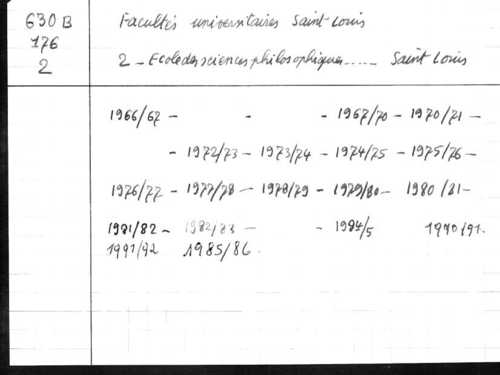 630 B
176
2
Facultés universitaires Saint-Louis
2 - Ecole des sciences philosophiques..... Saint Louis
1966/67 - - - 1967/70 - 1970/71 -
- 1972/73 - 1973/74 - 1974/75 - 1975/76 -
1976/77 - 1977/78 - 1978/79 - 1979/80 - 1980/81 -
1981/82 - 1982/83 - - 1984/5 1990/91.
1991/92 1985/86.